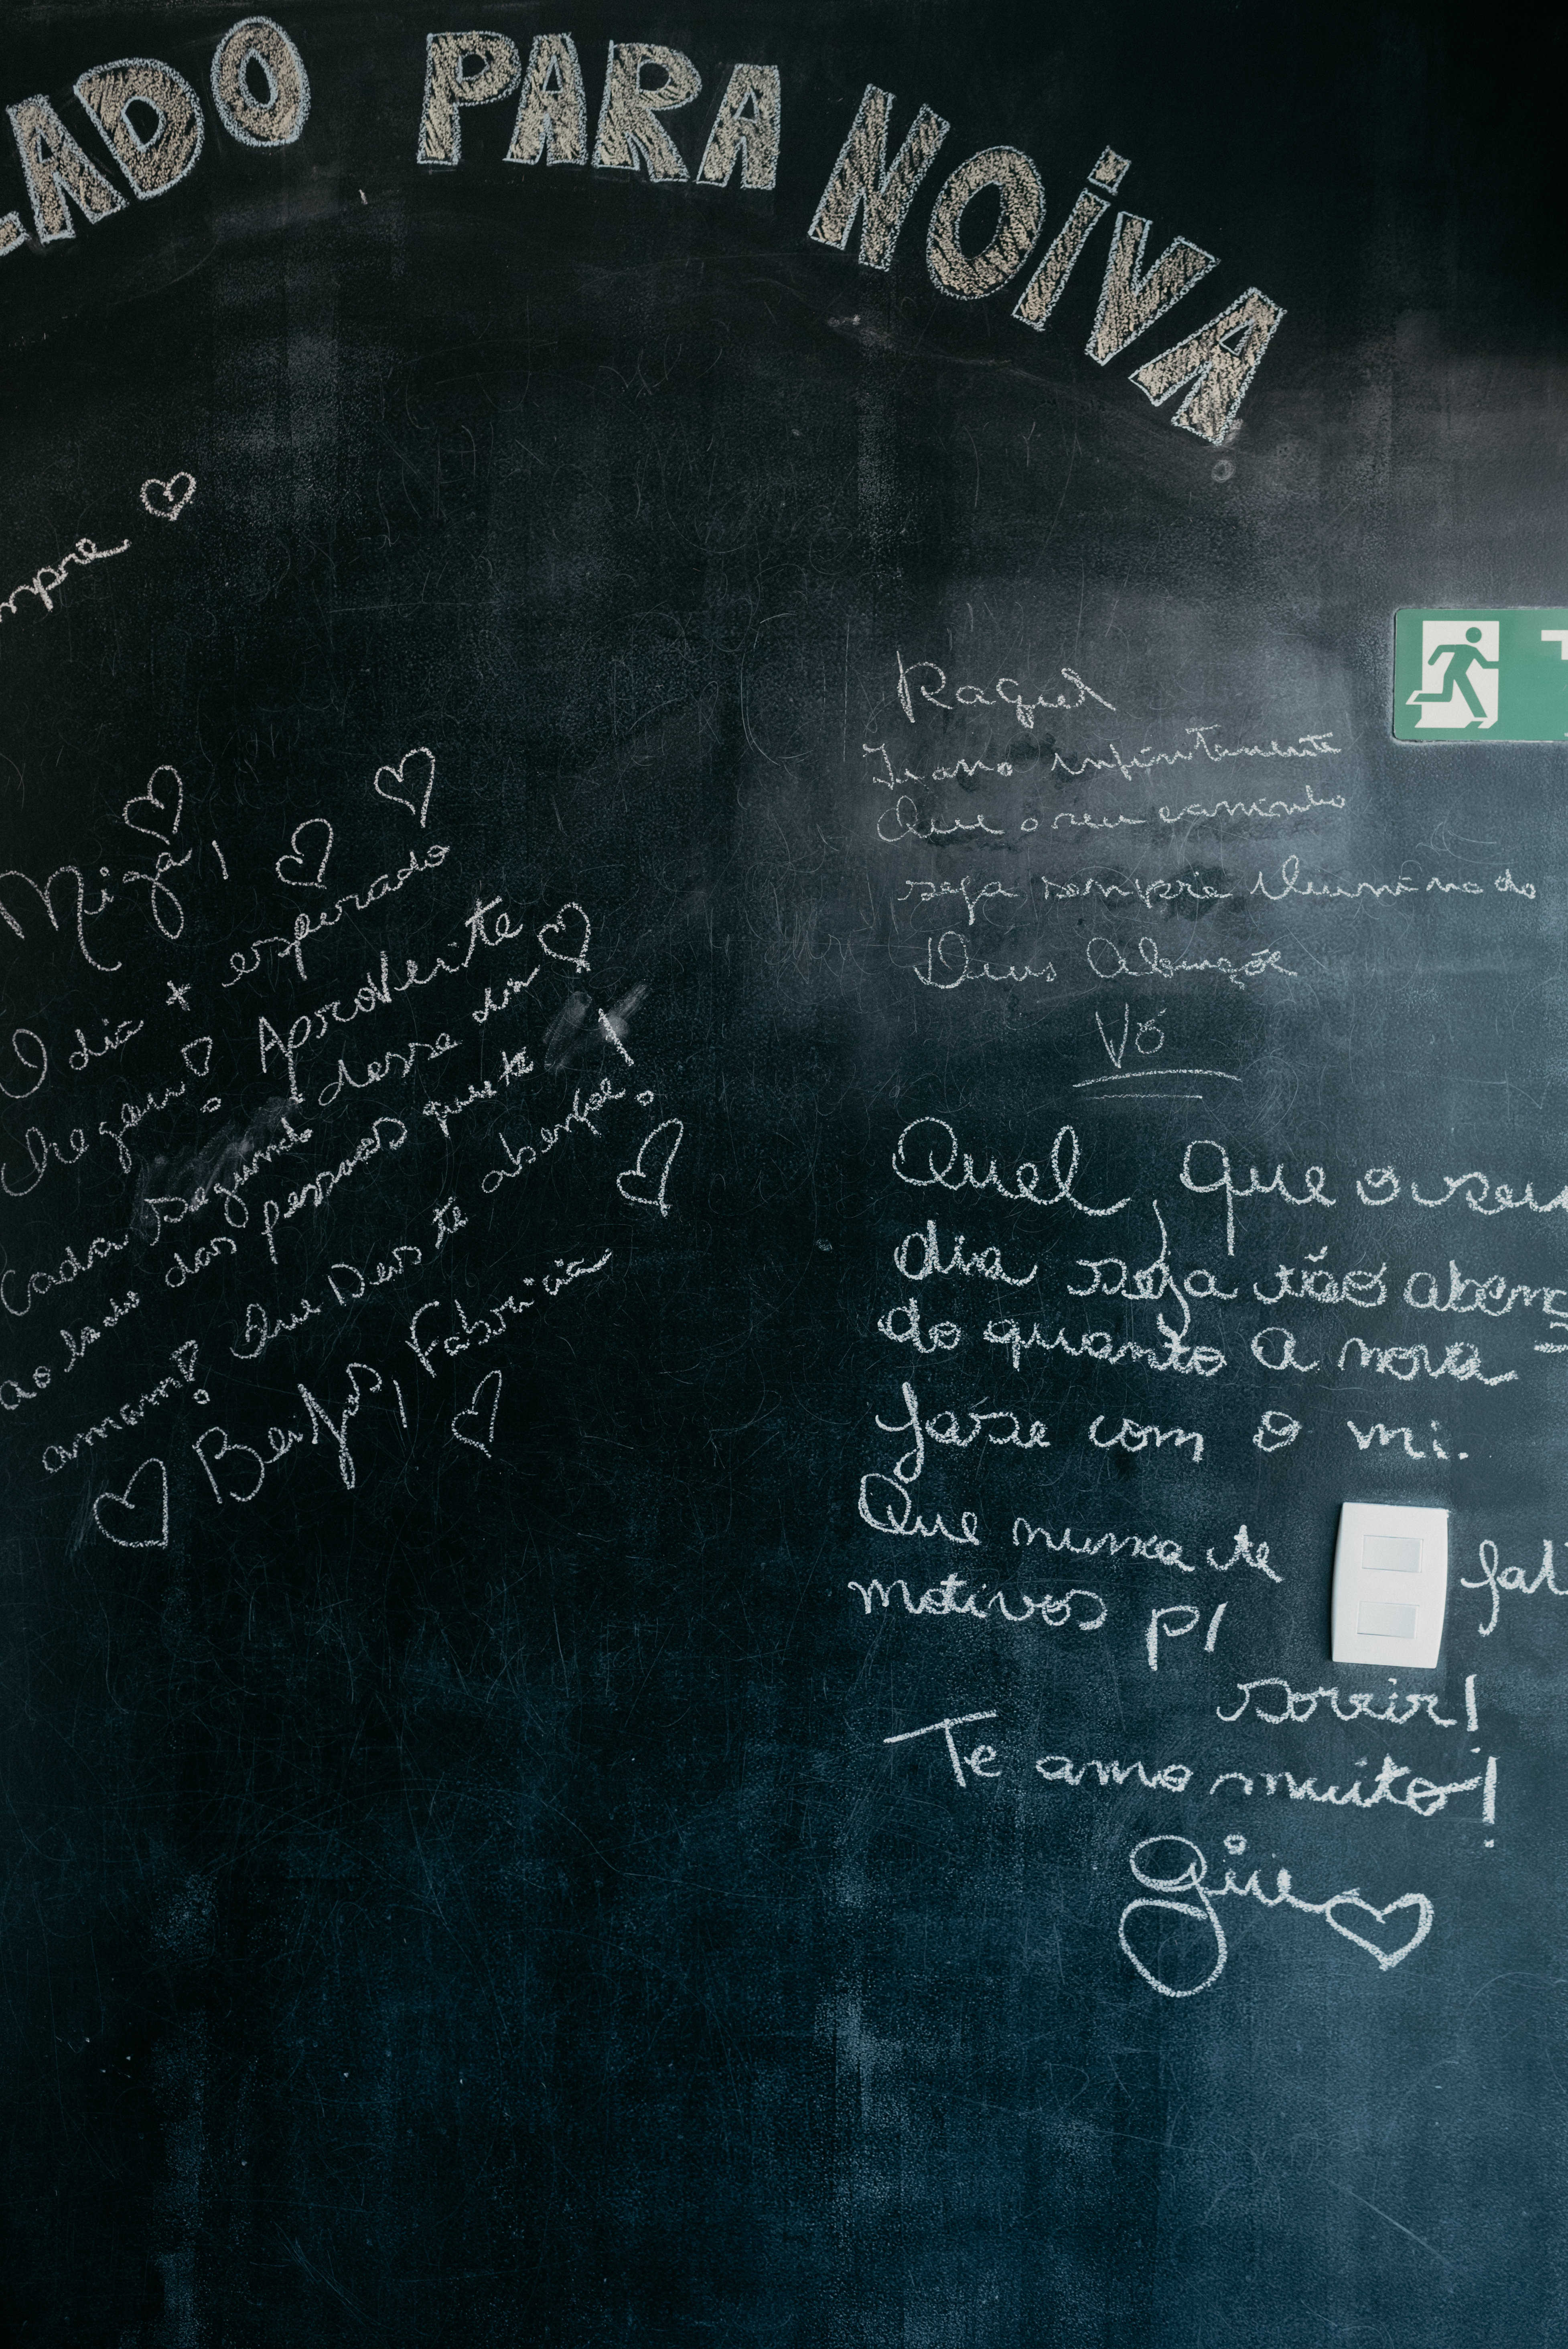 LADO PARA NOIVA
mpre
Miga!
O dia + esperado
chegou! Aproveite
Cada segundo desse dia
ao lado das pessoas que te
amam! Que Deus te abençoe.
Beijos, Fabricia
Raquel
Te amo infinitamente
Que o seu caminho
seja sempre iluminado
Deus Abençoe
Vó
Quel, que o seu
dia seja tão aben
do quanto a nova
fase com o mi.
Que nunca te fal
motivos p/
sorrir!
Te amo muito!